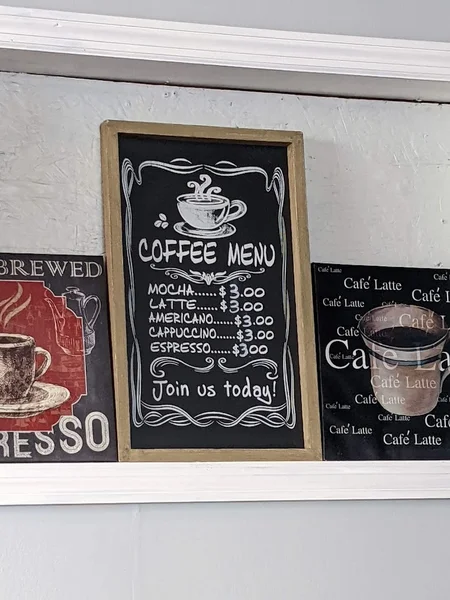 BREWED
RESSO
COFFEE MENU
MOCHA......$3.00
LATTE......$3.00
AMERICANO...$3.00
CAPPUCCINO....$3.00
ESPRESSO....$300
Join us today!
Café Latte
Café Latte
Café L
Café Latte
Café Latte
Café
Café L
Café La
Café Latte
Café Latte
Café Latte
Café Latte
Café
Café Latte
Café Latte